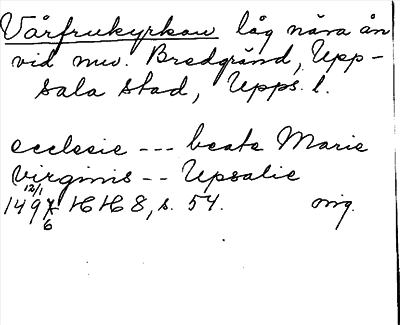 Vårfrukyrkan låg nära ån
vid nuv. Bredgränd, Upp-
sala stad, Upps. l.
ecclesie --- beate Marie
virginis -- Upsalie
12/1
149 HH 8, s. 54. orig.
6